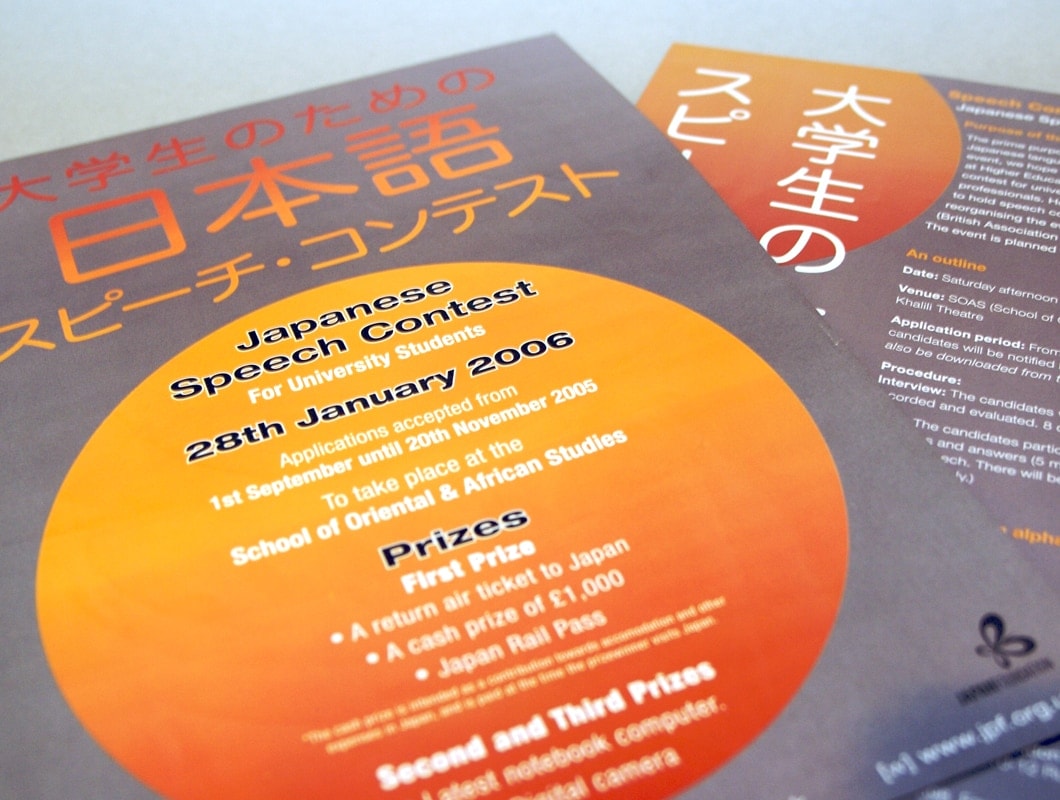 大学生のための
日本語
スピーチ・コンテスト
Japanese
Speech Contest
For University Students
28th January 2006
Applications accepted from
1st September until 20th November 2005
To take place at the
School of Oriental & African Studies
Prizes
First Prize
• A return air ticket to Japan
• A cash prize of £1,000
• Japan Rail Pass
*The cash prize is intended as a contribution towards accomodation and other
expenses in Japan, and is paid at the time the prizewinner visits Japan.
Second and Third Prizes
Latest notebook computer.
Digital camera
大学生の
スピ
Speech
Japanese
Purpose of
The prime
Japanese
event, we
at Higher
contest for
professionals.
to hold speech
reorganising the
(British Association
The event is planned
An outline
Date: Saturday afternoon
Venue: SOAS (School of
Khalili Theatre
Application period: From
candidates will be notified
also be downloaded from
Procedure:
Interview: The candidates
and evaluated. 8
The candidates
and answers (5
There will be
[w] www.jpf.org.